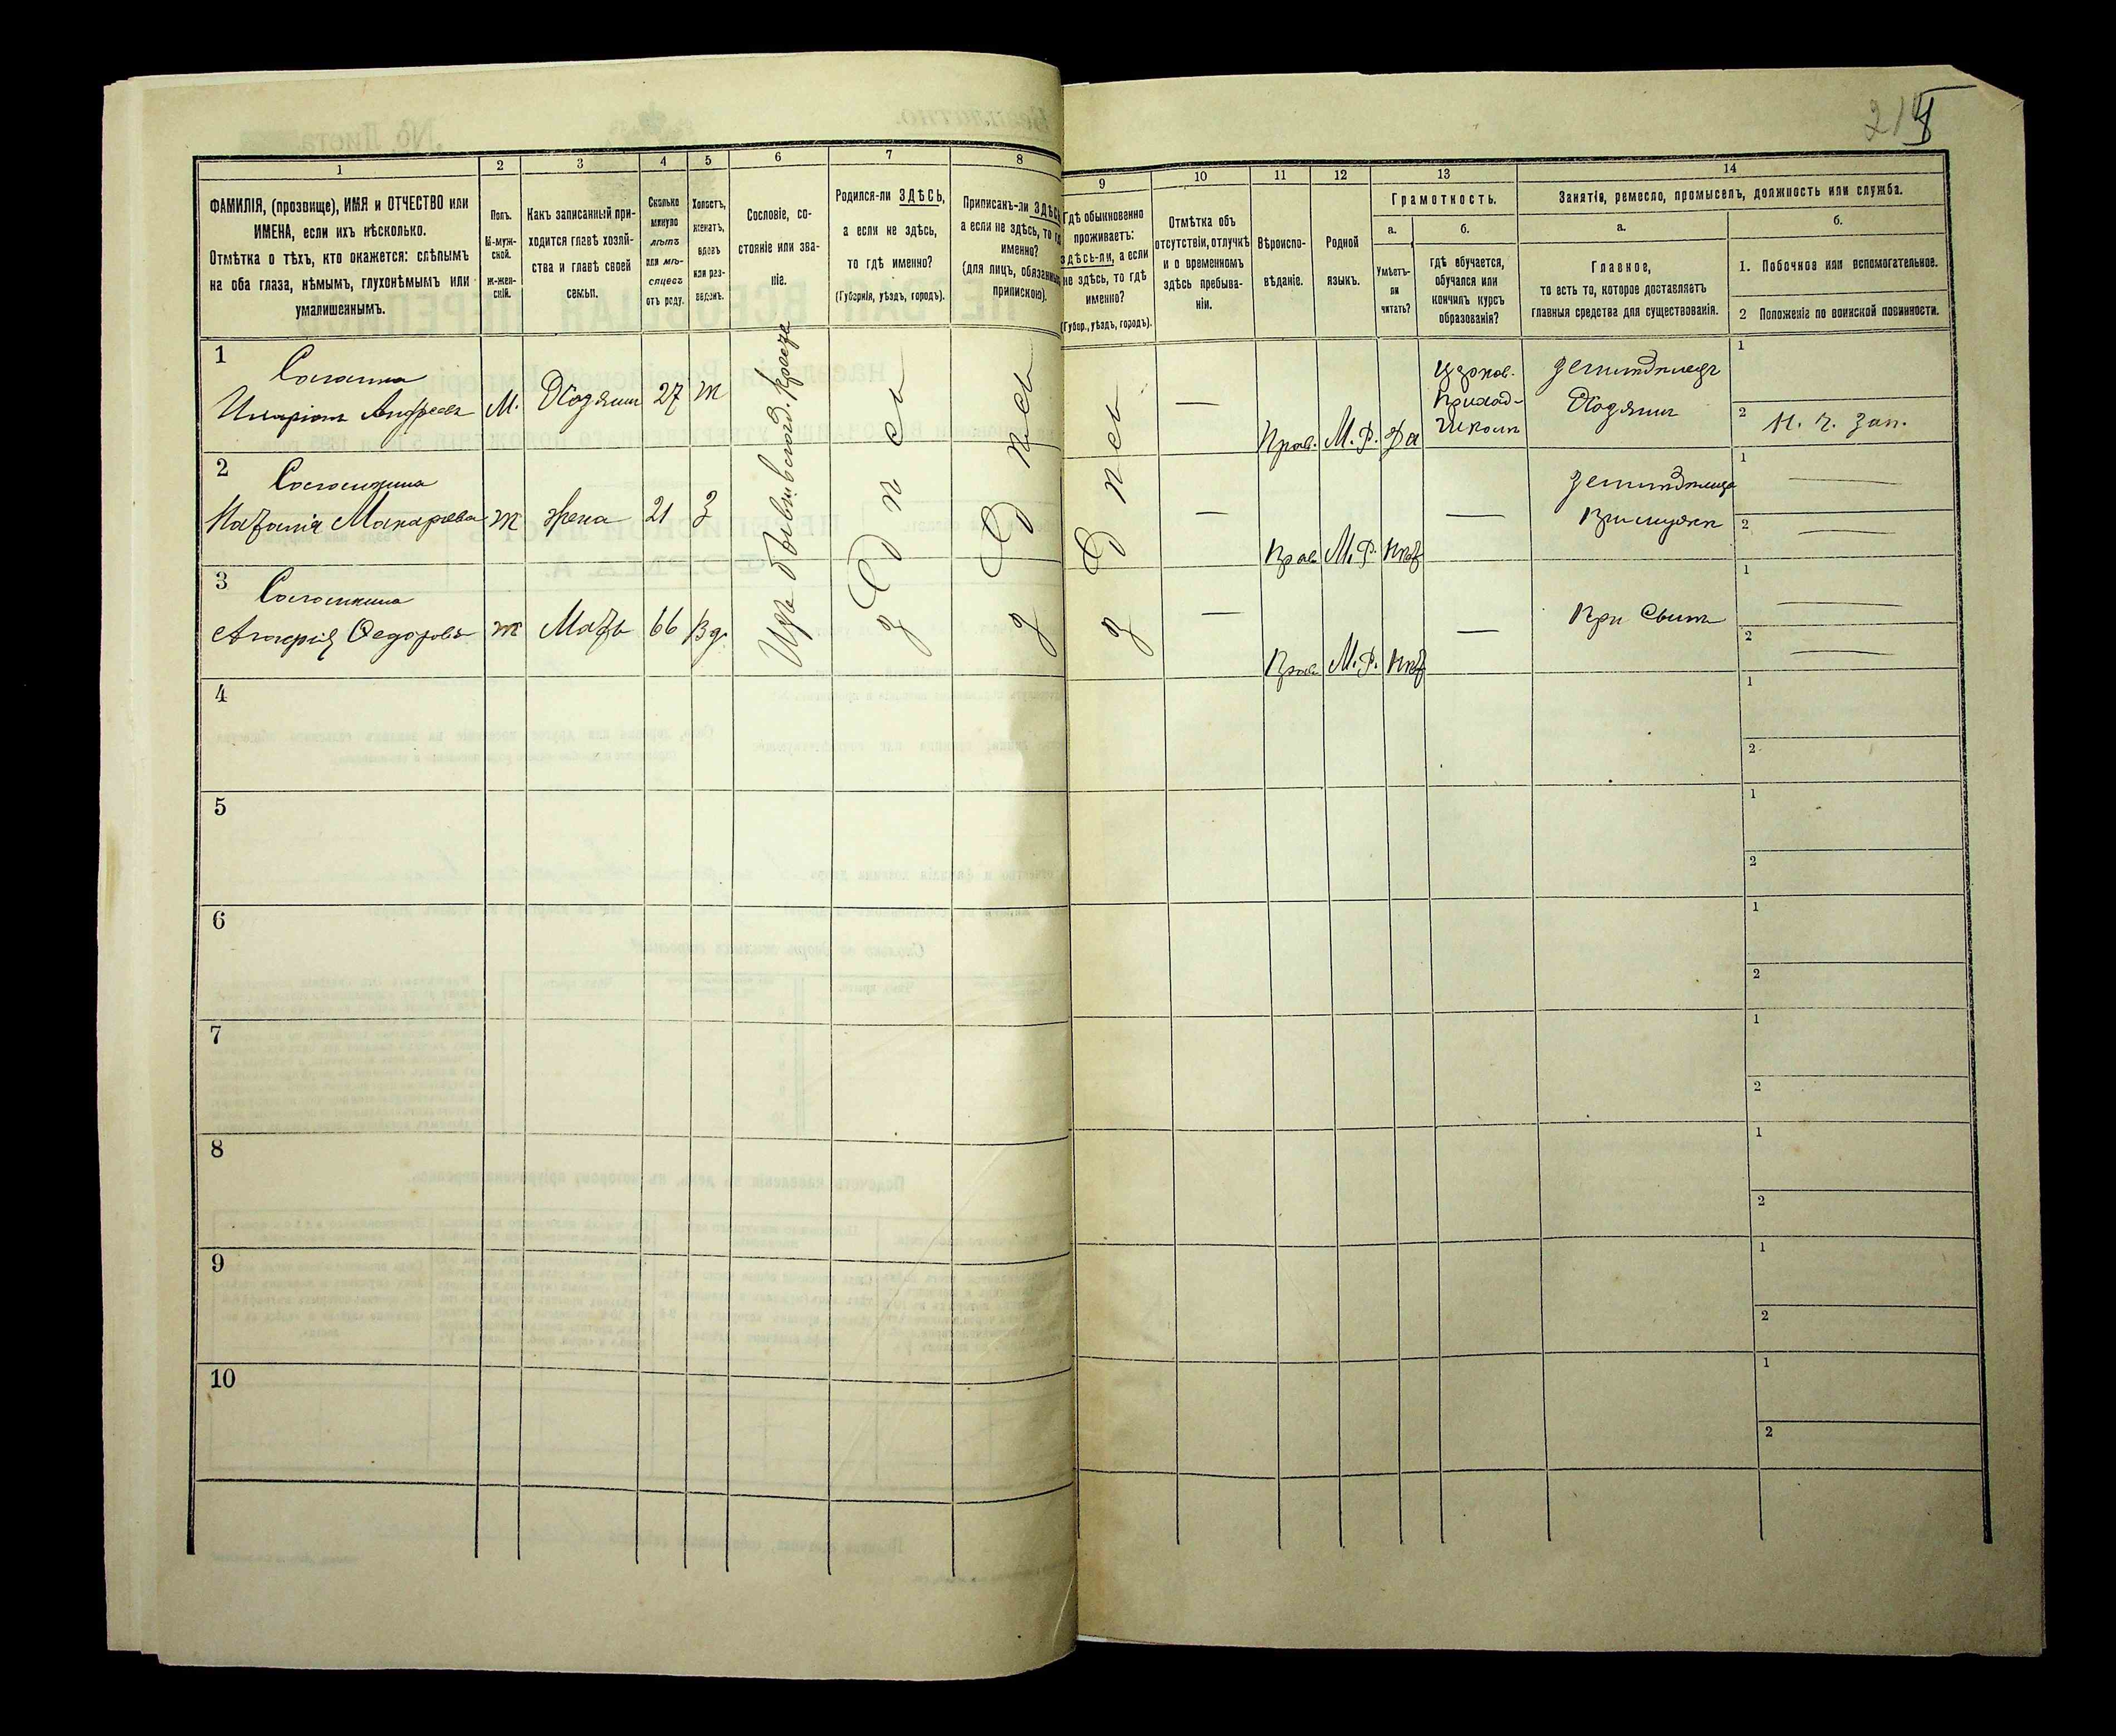 214
1
2
3
4
5
6
7
8
9
10
11
12
13
14
ФАМИЛІЯ, (прозвище), ИМЯ и ОТЧЕСТВО или
ИМЕНА, если ихъ нѣсколько.
Отмѣтка о тѣхъ, кто окажется: слѣпымъ
на оба глаза, нѣмымъ, глухонѣмымъ или
умалишеннымъ.
Полъ.
М-муж-
ской.
Ж-жен-
скій.
Какъ записанный при-
ходится главѣ хозяй-
ства и главѣ своей
семьи.
Сколько
минуло
лѣтъ
или мѣ-
сяцевъ
отъ роду.
Холостъ,
женатъ,
вдовъ
или раз-
веденъ.
Сословіе, со-
стояніе или зва-
ніе.
Родился-ли ЗДѢСЬ,
а если не здѣсь,
то гдѣ именно?
(Губернія, уѣздъ, городъ).
Приписанъ-ли ЗДѢСЬ
а если не здѣсь, то гд
именно?
(для лицъ, обязанных
припискою).
Гдѣ обыкновенно
проживаетъ:
здѣсь-ли, а если
не здѣсь, то гдѣ
именно?
(Губер., уѣздъ, городъ).
Отмѣтка объ
отсутствіи, отлучкѣ
и о временномъ
здѣсь пребыва-
ніи.
Вѣроиспо-
вѣданіе.
Родной
языкъ.
Грамотность.
а.
Умѣетъ-
ли
читать?
б.
гдѣ обучается,
обучался или
кончилъ курсъ
образованія?
Занятія, ремесло, промыселъ, должность или служба.
а.
Главное,
то есть то, которое доставляетъ
главныя средства для существованія.
б.
1. Побочное или вспомогательное.
2 Положеніе по воинской повинности.
1
Андреевъ
М.
Хозяинъ
27
ж
Изъ бывш. госуд. крест.
здѣсь
здѣсь
здѣсь
—
Прав.
М. Р.
да
Церков.
Приход-
Школѣ
Земледѣлецъ
Хозяинъ
1
2 Н. ч. Зап.
2
Наталія Макарьева
ж
жена
21
З
—
Прав
М. Р.
нѣт
—
Земледѣлица
При мужѣ
1 —
2 —
3
Федорова
ж
Мать
66
Вд.
—
Прав
М. Р.
нѣт
—
При Сынѣ
1 —
2 —
4
1
2
5
1
2
6
1
2
7
1
2
8
1
2
9
1
2
10
1
2